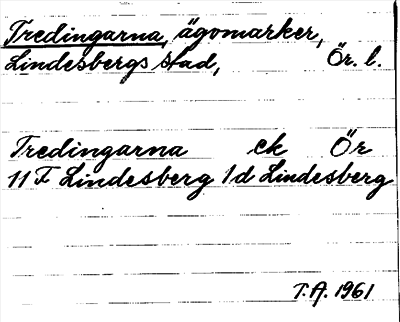 Tredingarna, ägomarker,
Lindesbergs stad, Ör. l.
Tredingarna ek Ör
11 F Lindesberg 1 d Lindesberg
T.A. 1961